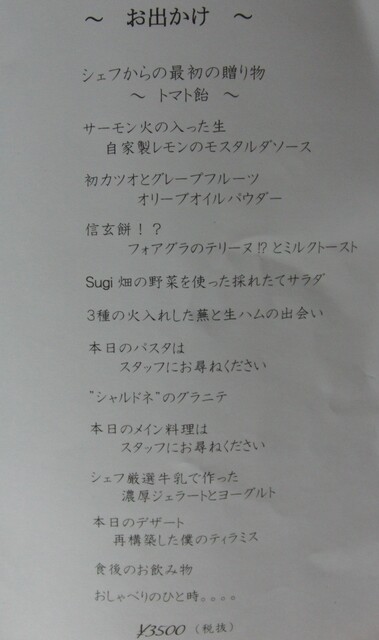 ～ お出かけ ～
シェフからの最初の贈り物
～ トマト飴 ～
サーモン火の入った生
自家製レモンのモスタルダソース
初カツオとグレープフルーツ
オリーブオイルパウダー
信玄餅！？
フォアグラのテリーヌ!?とミルクトースト
Sugi 畑の野菜を使った採れたてサラダ
３種の火入れした蕪と生ハムの出会い
本日のパスタは
スタッフにお尋ねください
"シャルドネ"のグラニテ
本日のメイン料理は
スタッフにお尋ねください
シェフ厳選牛乳で作った
濃厚ジェラートとヨーグルト
本日のデザート
再構築した僕のティラミス
食後のお飲み物
おしゃべりのひと時。。。。
¥3500（税抜）